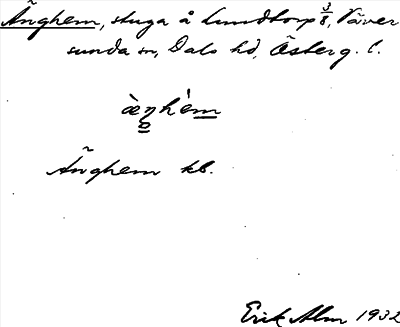 Änghem, stuga å Lundtorp 3/8, Väver
sunda sn, Dals hd, Österg. l.
æ̀ŋhèm
Änghem kb.
Erik Alm 1932